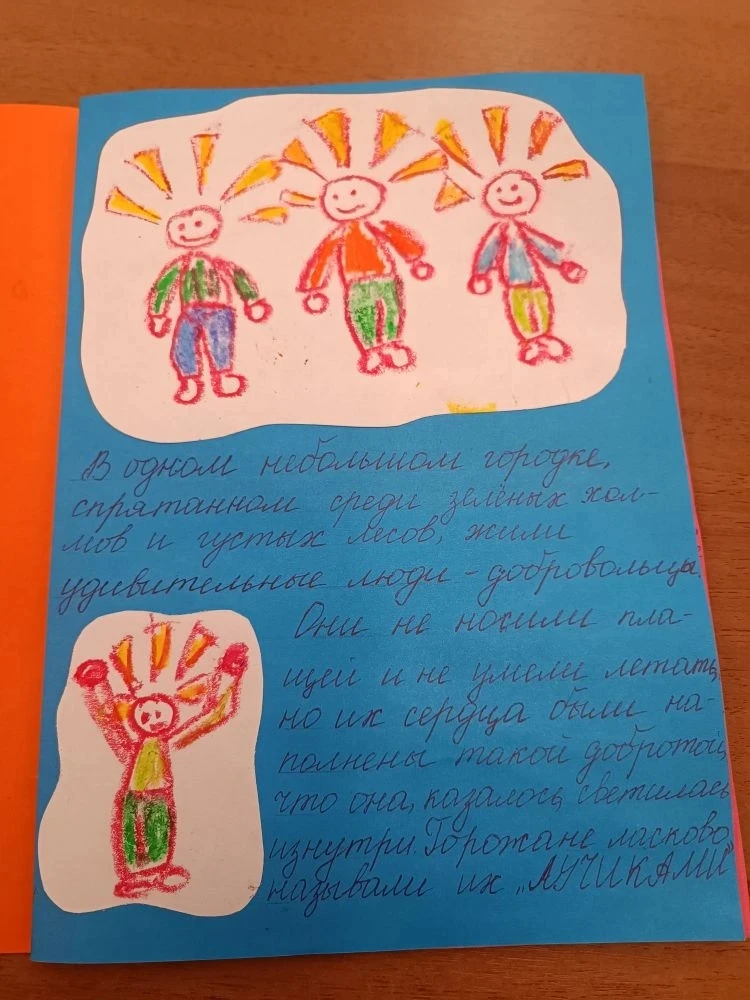 В одном небольшом городке,
спрятанном среди зелёных хол-
мов и густых лесов, жили
удивительные люди - добровольцы.
Они не носили пла-
щей и не умели летать,
но их сердца были на-
полнены такой добротой,
что она, казалось, светилась
изнутри. Горожане ласково
называли их „ЛУЧИКАМИ"